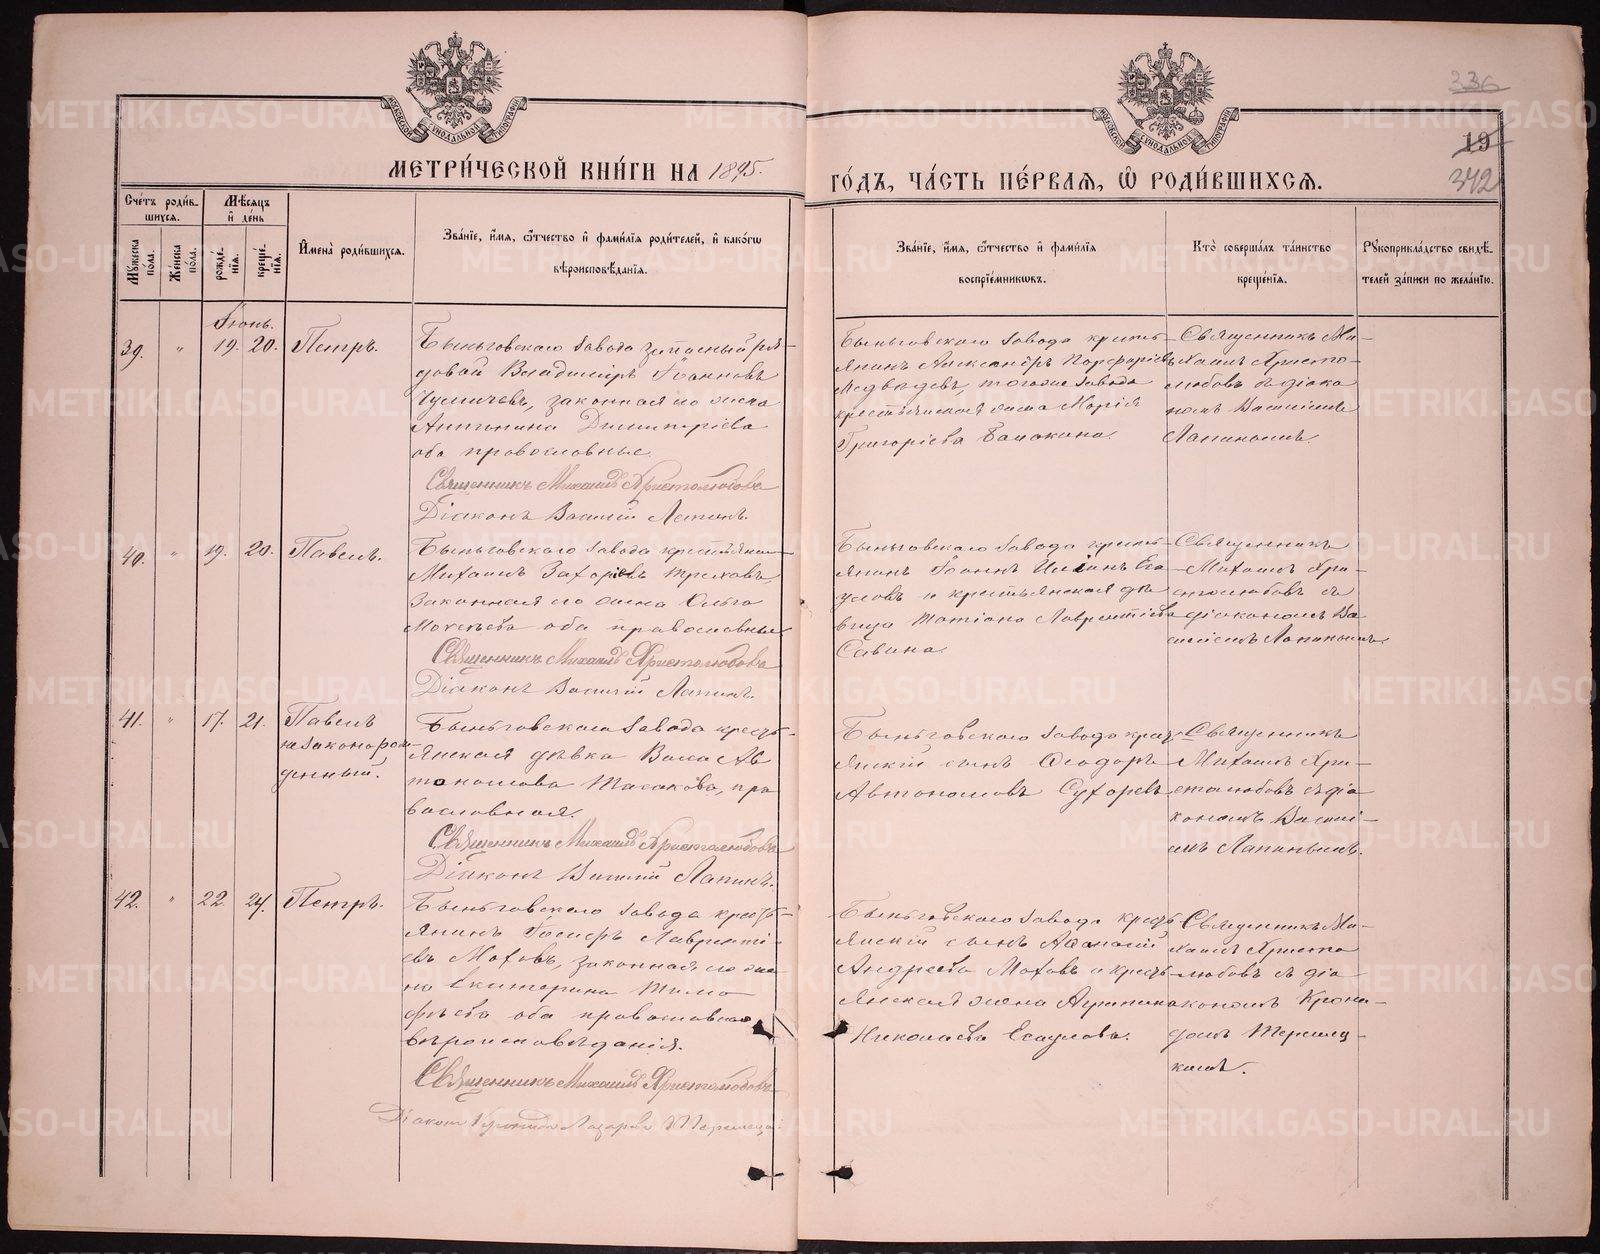 МОСКОВСКОЙ СѴНОДАЛЬНОЙ ТИПОГРАФІИ
МОСКОВСКОЙ СѴНОДАЛЬНОЙ ТИПОГРАФІИ
336
19
342
МЕТРИ́ЧЕСКОЙ КНИ́ГИ НА 1895.
ГО́ДЪ, ЧА́СТЬ ПЕ́РВАЯ, Ѡ РОДИ́ВШИХСЯ.
Сче́тъ роди́в-
шихся.
Мѣ́сяцъ
и҆ де́нь
Мꙋ́жеска по́ла.
Же́нска по́ла.
рожде́-
нія.
креще́-
нія.
И҆мена̀ роди́вшихся.
Зва́ніе, и҆́мя, ѻ҆́тчество и҆ фами́лія роди́телей, и҆ како́гѡ
вѣроисповѣ́данія.
Зва́ніе, и҆́мя, ѻ҆́тчество и҆ фами́лія
воспріе́мникѡвъ.
Кто̀ соверша́лъ та́инство
креще́нія.
Рꙋкоприкла́дство свидѣ́-
телей за́писи по жела́нію.
Іюнь.
39. " 19. 20. Петръ.
Быньговскаго завода запасный ря-
довой Владиміръ Іоанновъ
законная его жена
Антонина Димитріева
оба православные.
Священникъ Михаилъ Христолюбовъ
Діаконъ Василій Лапинъ.
Быньговскаго завода кресть-
янинъ Александръ Порфирьевъ
Медвѣдевъ, тогоже завода
крестьянская жена Марія
Григоріева
Священникъ Ми-
хаилъ Христо-
любовъ съ діако
номъ Василіемъ
Лапинымъ.
40. " 19. 20. Павелъ.
Быньговскаго завода крестьянинъ
Михаилъ Захаріевъ
законная его жена Ольга
оба православные
Священникъ Михаилъ Христолюбовъ
Діаконъ Василій Лапинъ.
Быньговскаго завода кресть-
янинъ Іоаннъ Еса
уловъ и крестьянская дѣ
вица Татіана Лаврентіева
Савина.
Священникъ
Михаилъ Хри-
столюбовъ съ
діакономъ Ва
силіемъ Лапинымъ.
41. " 17. 21. Павелъ
незаконорож-
денный.
Быньговскаго завода кресть-
янская дѣвка Ав
тономова пра
вославная.
Священникъ Михаилъ Христолюбовъ
Діаконъ Василій Лапинъ.
Быньговскаго завода кресть
янскій сынъ Ѳеодоръ
Автономовъ Сухоревъ
Священникъ
Михаилъ Хри-
столюбовъ съ діа
кономъ Василі-
емъ Лапинымъ.
42. " 22 24. Петръ.
Быньговскаго завода кресть-
янинъ Лавренті-
евъ Моховъ, законная его же-
на Екатерина Тимо
фѣева оба православнаго
вѣроисповѣданія.
Священникъ Михаилъ Христолюбовъ
Діаконъ
Быньговскаго завода кресть
янскій сынъ Аѳанасій
Андреевъ Моховъ и кресть-
янская жена Агрипина
Николаева Есаулова.
Священникъ Ми-
хаилъ Христо
любовъ съ діа
кономъ Крони-
домъ
METRIKI.GASO-URAL.RU